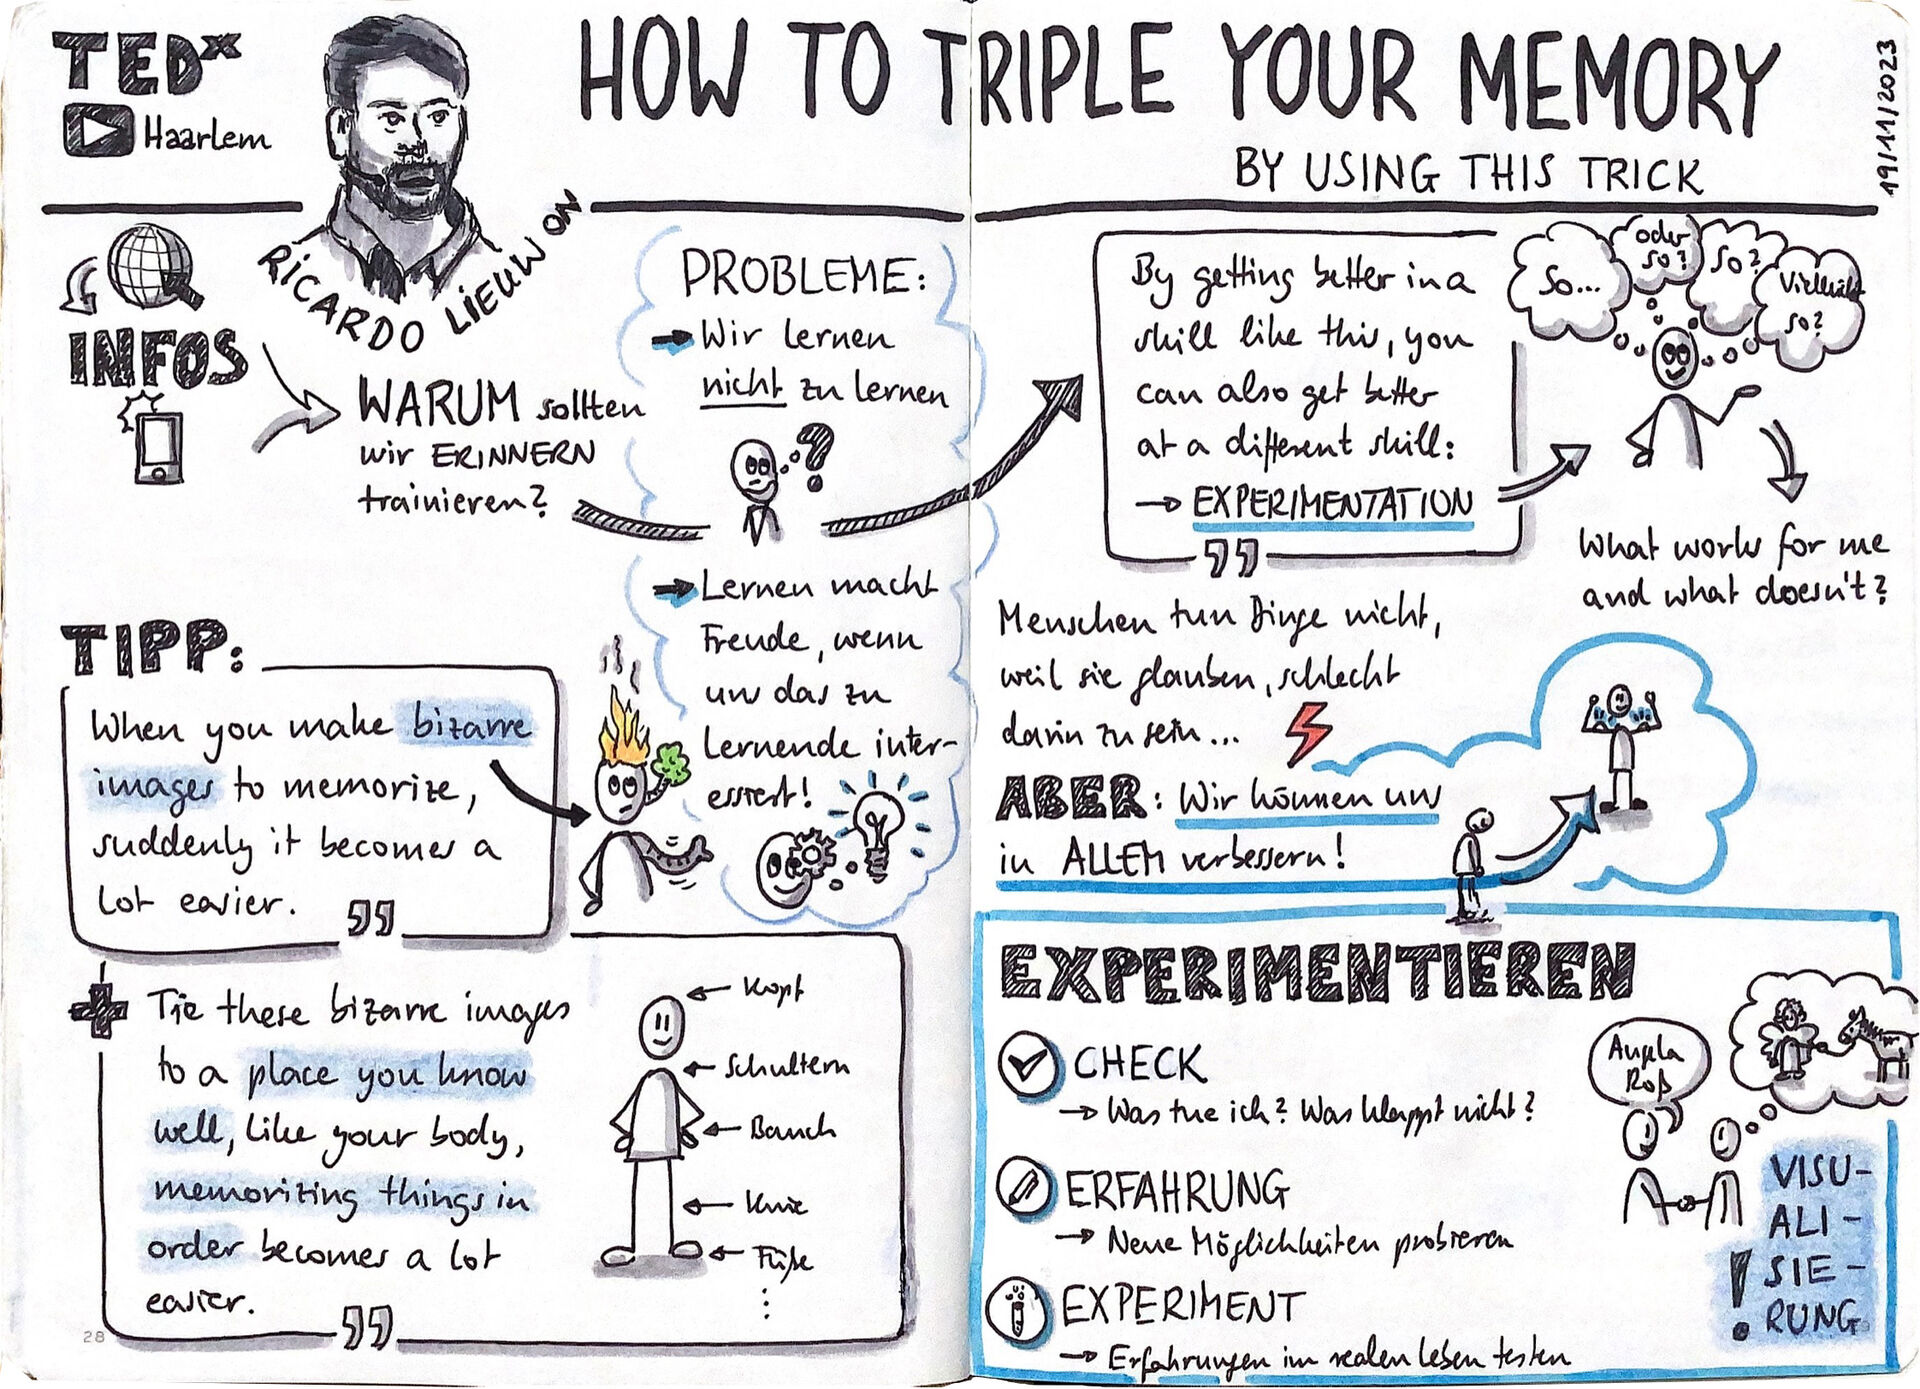 TEDx
Haarlem
HOW TO TRIPLE YOUR MEMORY
BY USING THIS TRICK
19/11/2023
RICARDO LIEUW ON
INFOS
WARUM sollten
wir ERINNERN
trainieren?
PROBLEME:
Wir lernen
nicht zu lernen
?
Lernen macht
Freude, wenn
uns das zu
Lernende inter-
essiert!
TIPP:
When you make bizarre
images to memorize,
suddenly it becomes a
lot easier.
"
+ Tie these bizarre images
to a place you know
well, like your body,
memorizing things in
order becomes a lot
easier.
"
← Kopf
← Schultern
← Bauch
← Knie
← Füße
⋮
28
By getting better in a
skill like this, you
can also get better
at a different skill:
→ EXPERIMENTATION
"
So...
oder
so?
So?
Vielleicht
so?
What works for me
and what doesn't?
Menschen tun Dinge nicht,
weil sie glauben, schlecht
darin zu sein...
ABER: Wir können uns
in ALLEM verbessern!
EXPERIMENTIEREN
CHECK
→ Was tue ich? Was klappt nicht?
ERFAHRUNG
→ Neue Möglichkeiten probieren
EXPERIMENT
→ Erfahrungen im realen Leben testen
Angela
Roß
VISU-
ALI-
SIE-
RUNG
!